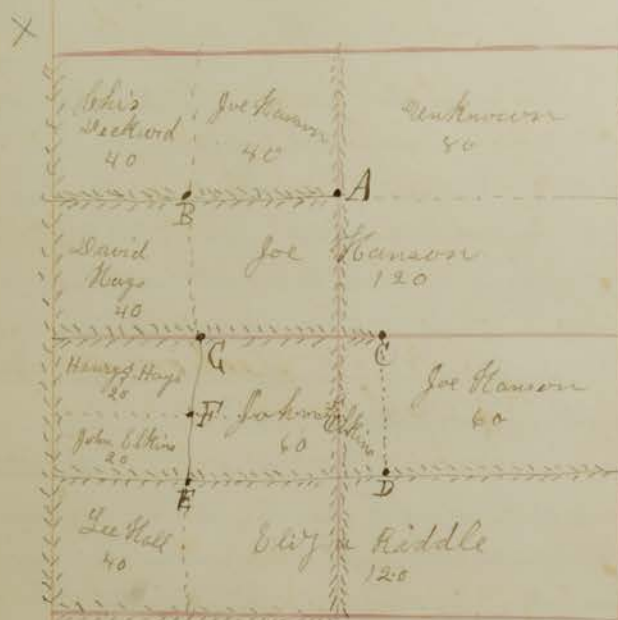 X
Chis
Deckard
40
Joe Hanson
40
Unknown
80
B
A
David
Hays
40
Joe Hanson
120
G
C
Henry Hays
20
F
John Elkins
60
Joe Hanson
60
John Elkins
20
E
D
Lee Hall
40
Eliza Riddle
120